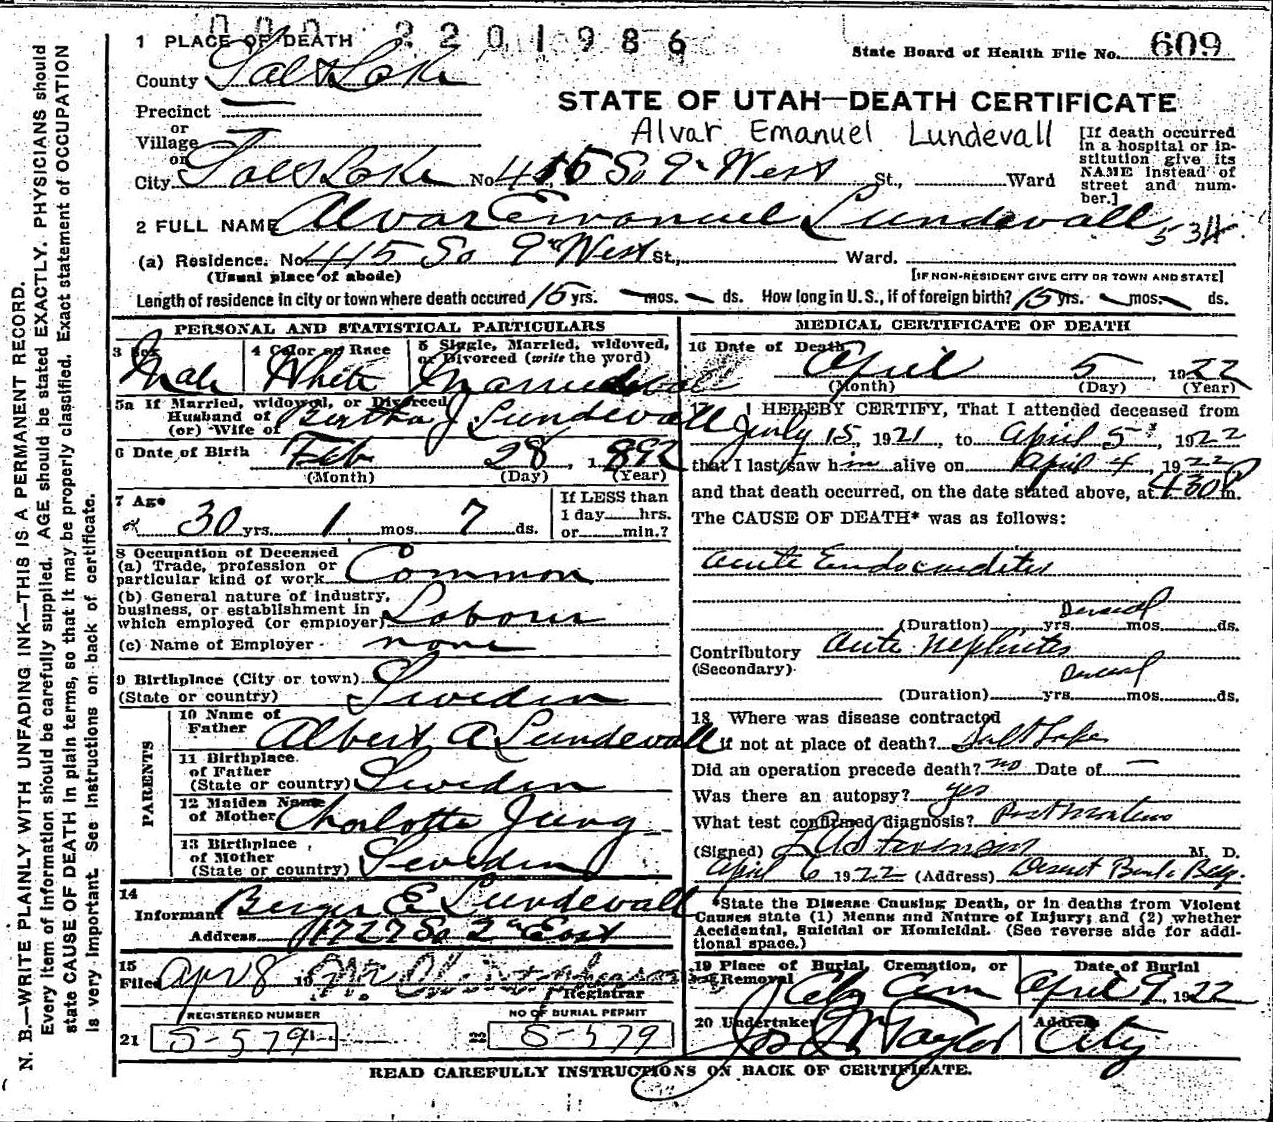 2201986
1 PLACE OF DEATH
State Board of Health File No. 609
County Salt Lake
STATE OF UTAH—DEATH CERTIFICATE
Precinct
Alvar Emanuel Lundevall
or
Village
or
City Salt Lake No. 415 So 9th West St., Ward
[If death occurred in a hospital or institution give its NAME instead of street and number.]
2 FULL NAME Alvar Emanuel Lundevall 534
(a) Residence. No. 415 So 9th West St., Ward.
(Usual place of abode) [IF NON-RESIDENT GIVE CITY OR TOWN AND STATE]
Length of residence in city or town where death occured 15 yrs. — mos. — ds. How long in U.S., if of foreign birth? 15 yrs. — mos. — ds.
PERSONAL AND STATISTICAL PARTICULARS
3 Sex Male
4 Color or Race White
5 Single, Married, widowed, or Divorced (write the word) Married
5a If Married, widowed, or Divorced
Husband of
(or) Wife of Bertha J Lundevall
6 Date of Birth Feb 28, 1892
(Month) (Day) (Year)
7 Age
or 30 yrs. 1 mos. 7 ds.
If LESS than
1 day hrs.
or min.?
8 Occupation of Deceased
(a) Trade, profession or
particular kind of work Common
(b) General nature of industry,
business, or establishment in
which employed (or employer) Laborer
(c) Name of Employer none
9 Birthplace (City or town)
(State or country) Sweden
PARENTS
10 Name of
Father Albert A Lundevall
11 Birthplace
of Father
(State or country) Sweden
12 Maiden Name
of Mother Charlotte Jung
13 Birthplace
of Mother
(State or country) Sweden
14
Informant Berger E Lundevall
Address 1727 So 2nd East
15
Filed Apr 8 19
Registrar
REGISTERED NUMBER NO OF BURIAL PERMIT
21 S-579 22 S-579
MEDICAL CERTIFICATE OF DEATH
16 Date of Death April 5, 1922
(Month) (Day) (Year)
17 I HEREBY CERTIFY, That I attended deceased from
July 15, 1921, to April 5, 1922
that I last saw him alive on April 4, 1922
and that death occurred, on the date stated above, at 430P m.
The CAUSE OF DEATH* was as follows:
Acute Endocarditis
(Duration) yrs. Several mos. ds.
Contributory Acute Nephritis
(Secondary)
(Duration) yrs. Several mos. ds.
18 Where was disease contracted
if not at place of death? Salt Lake
Did an operation precede death? no Date of —
Was there an autopsy? yes
What test confirmed diagnosis? Post mortem
(Signed) L A Stevenson M. D.
April 6 1922 (Address) Deseret Bank Bldg.
*State the Disease Causing Death, or in deaths from Violent
Causes state (1) Means and Nature of Injury; and (2) whether
Accidental, Suicidal or Homicidal. (See reverse side for additional space.)
19 Place of Burial, Cremation, or
Removal City Cem
Date of Burial
April 9, 1922
20 Undertaker Jos Wm Taylor
Address City
READ CAREFULLY INSTRUCTIONS ON BACK OF CERTIFICATE.
N. B.—WRITE PLAINLY WITH UNFADING INK—THIS IS A PERMANENT RECORD.
Every item of information should be carefully supplied. AGE should be stated EXACTLY. PHYSICIANS should
state CAUSE OF DEATH in plain terms, so that it may be properly classified. Exact statement of OCCUPATION
is very important. See Instructions on back of certificate.